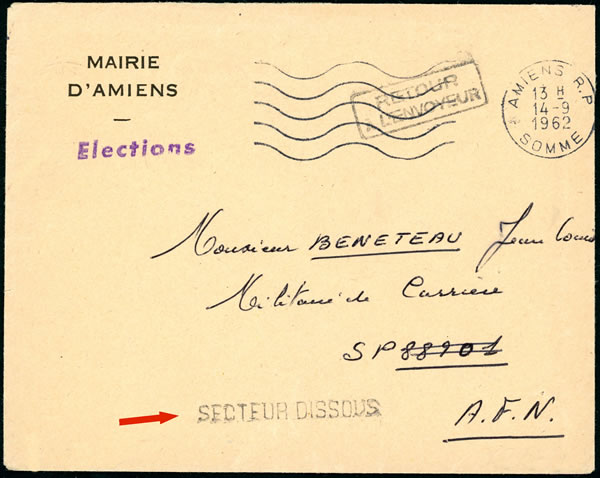 MAIRIE
D'AMIENS
—
Elections
RETOUR
A L'ENVOYEUR
AMIENS R.P
13 H
14-9
1962
SOMME
Monsieur BENETEAU Jean Louis
Militaire de Carrière
SP 88901
A.F.N.
SECTEUR DISSOUS